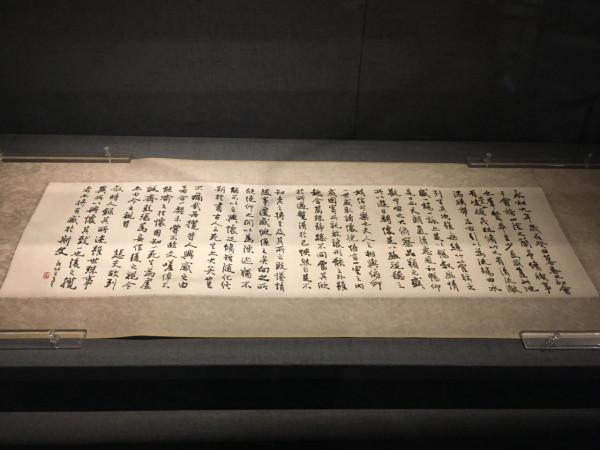 永和九年歲在癸丑暮春之初會
于會稽山陰之蘭亭脩禊事
也群賢畢至少長咸集此地
有崇山峻領茂林脩竹又有清流激
湍暎帶左右引以為流觴曲水
列坐其次雖無絲竹管弦之
盛一觴一詠亦足以暢敘幽情
是日也天朗氣清惠風和暢仰
觀宇宙之大俯察品類之盛
所以遊目騁懷足以極視聽之
娛信可樂也夫人之相與俯仰
一世或取諸懷抱悟言一室之內
或因寄所託放浪形骸之外雖
趣舍萬殊靜躁不同當其欣
於所遇暫得於己快然自足不
知老之將至及其所之既惓情
隨事遷感慨係之矣向之所
欣俛仰之間以為陳迹猶不
能不以之興懷況脩短隨化終
期於盡古人云死生亦大矣豈
不痛哉每攬昔人興感之由
若合一契未嘗不臨文嗟悼不
能喻之於懷固知一死生為虛
誕齊彭殤為妄作後之視今
亦由今之視昔 悲夫故列
敘時人錄其所述雖世殊事
異所以興懷其致一也後之攬
者亦將有感於斯文